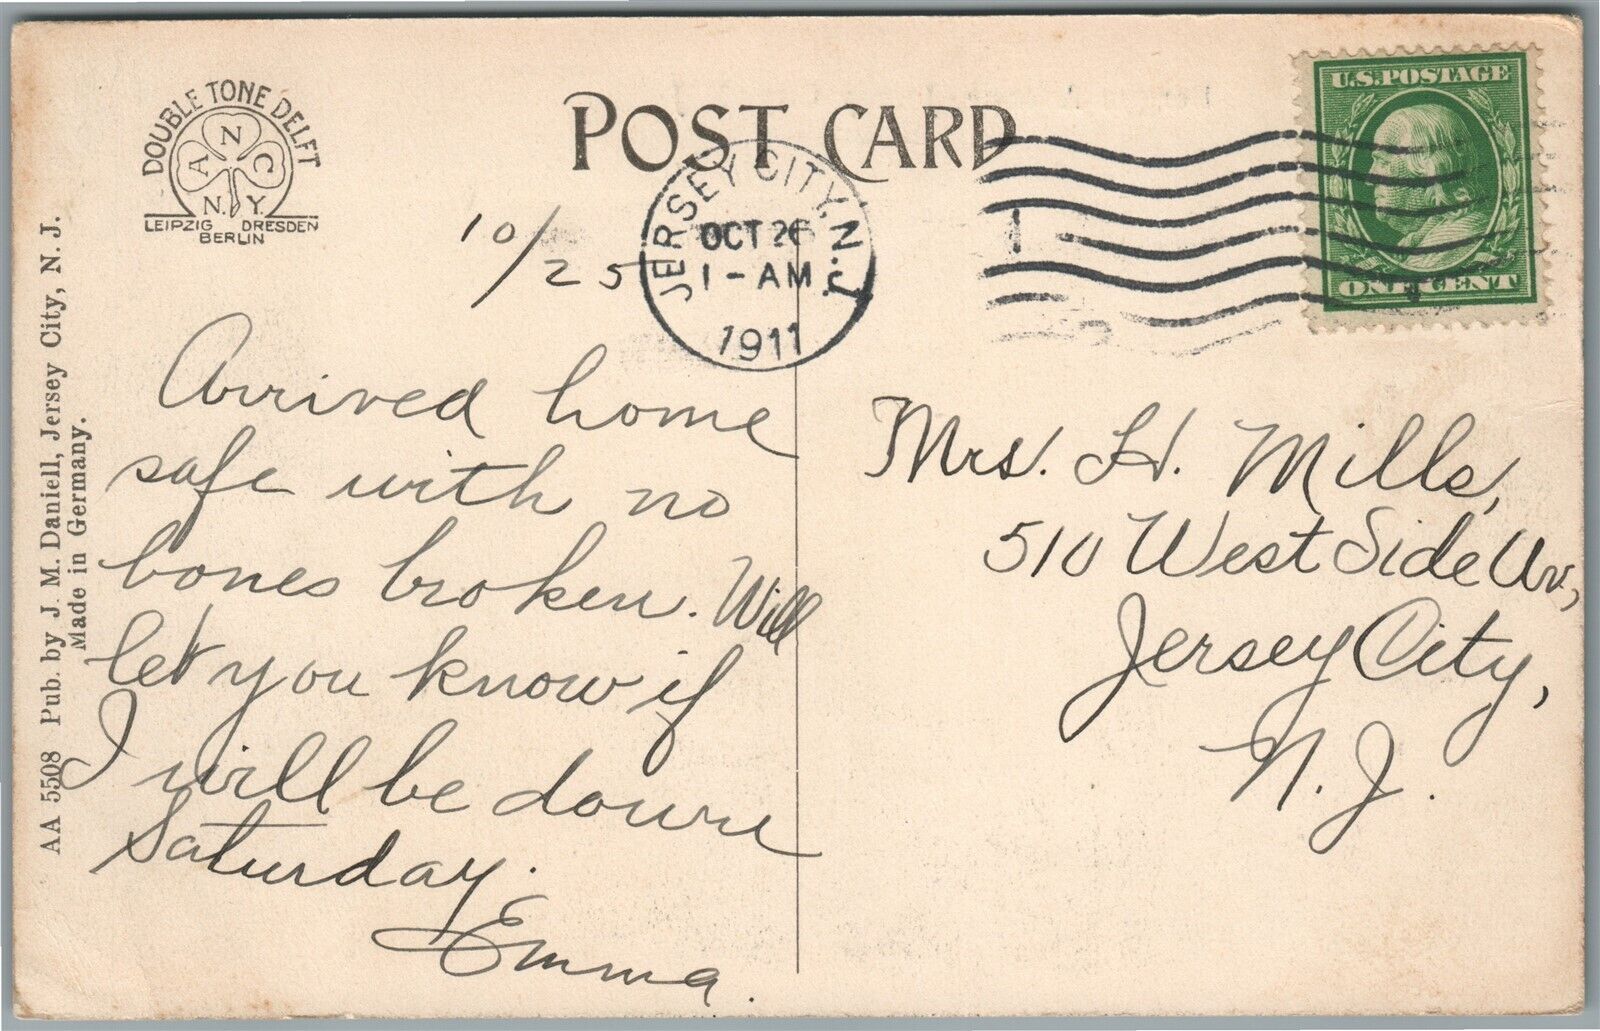 DOUBLE TONE DELFT
A N C
N. Y.
LEIPZIG DRESDEN
BERLIN
POST CARD
JERSEY CITY, N.J.
OCT 26
1-AM
1911
U.S. POSTAGE
ONE CENT
10/25
Arrived home
safe with no
bones broken. Will
let you know if
I will be down
Saturday.
Emma.
Mrs. H. Mills,
510 West Side Av.,
Jersey City,
N. J.
AA 5508 Pub. by J. M. Daniell, Jersey City, N. J.
Made in Germany.